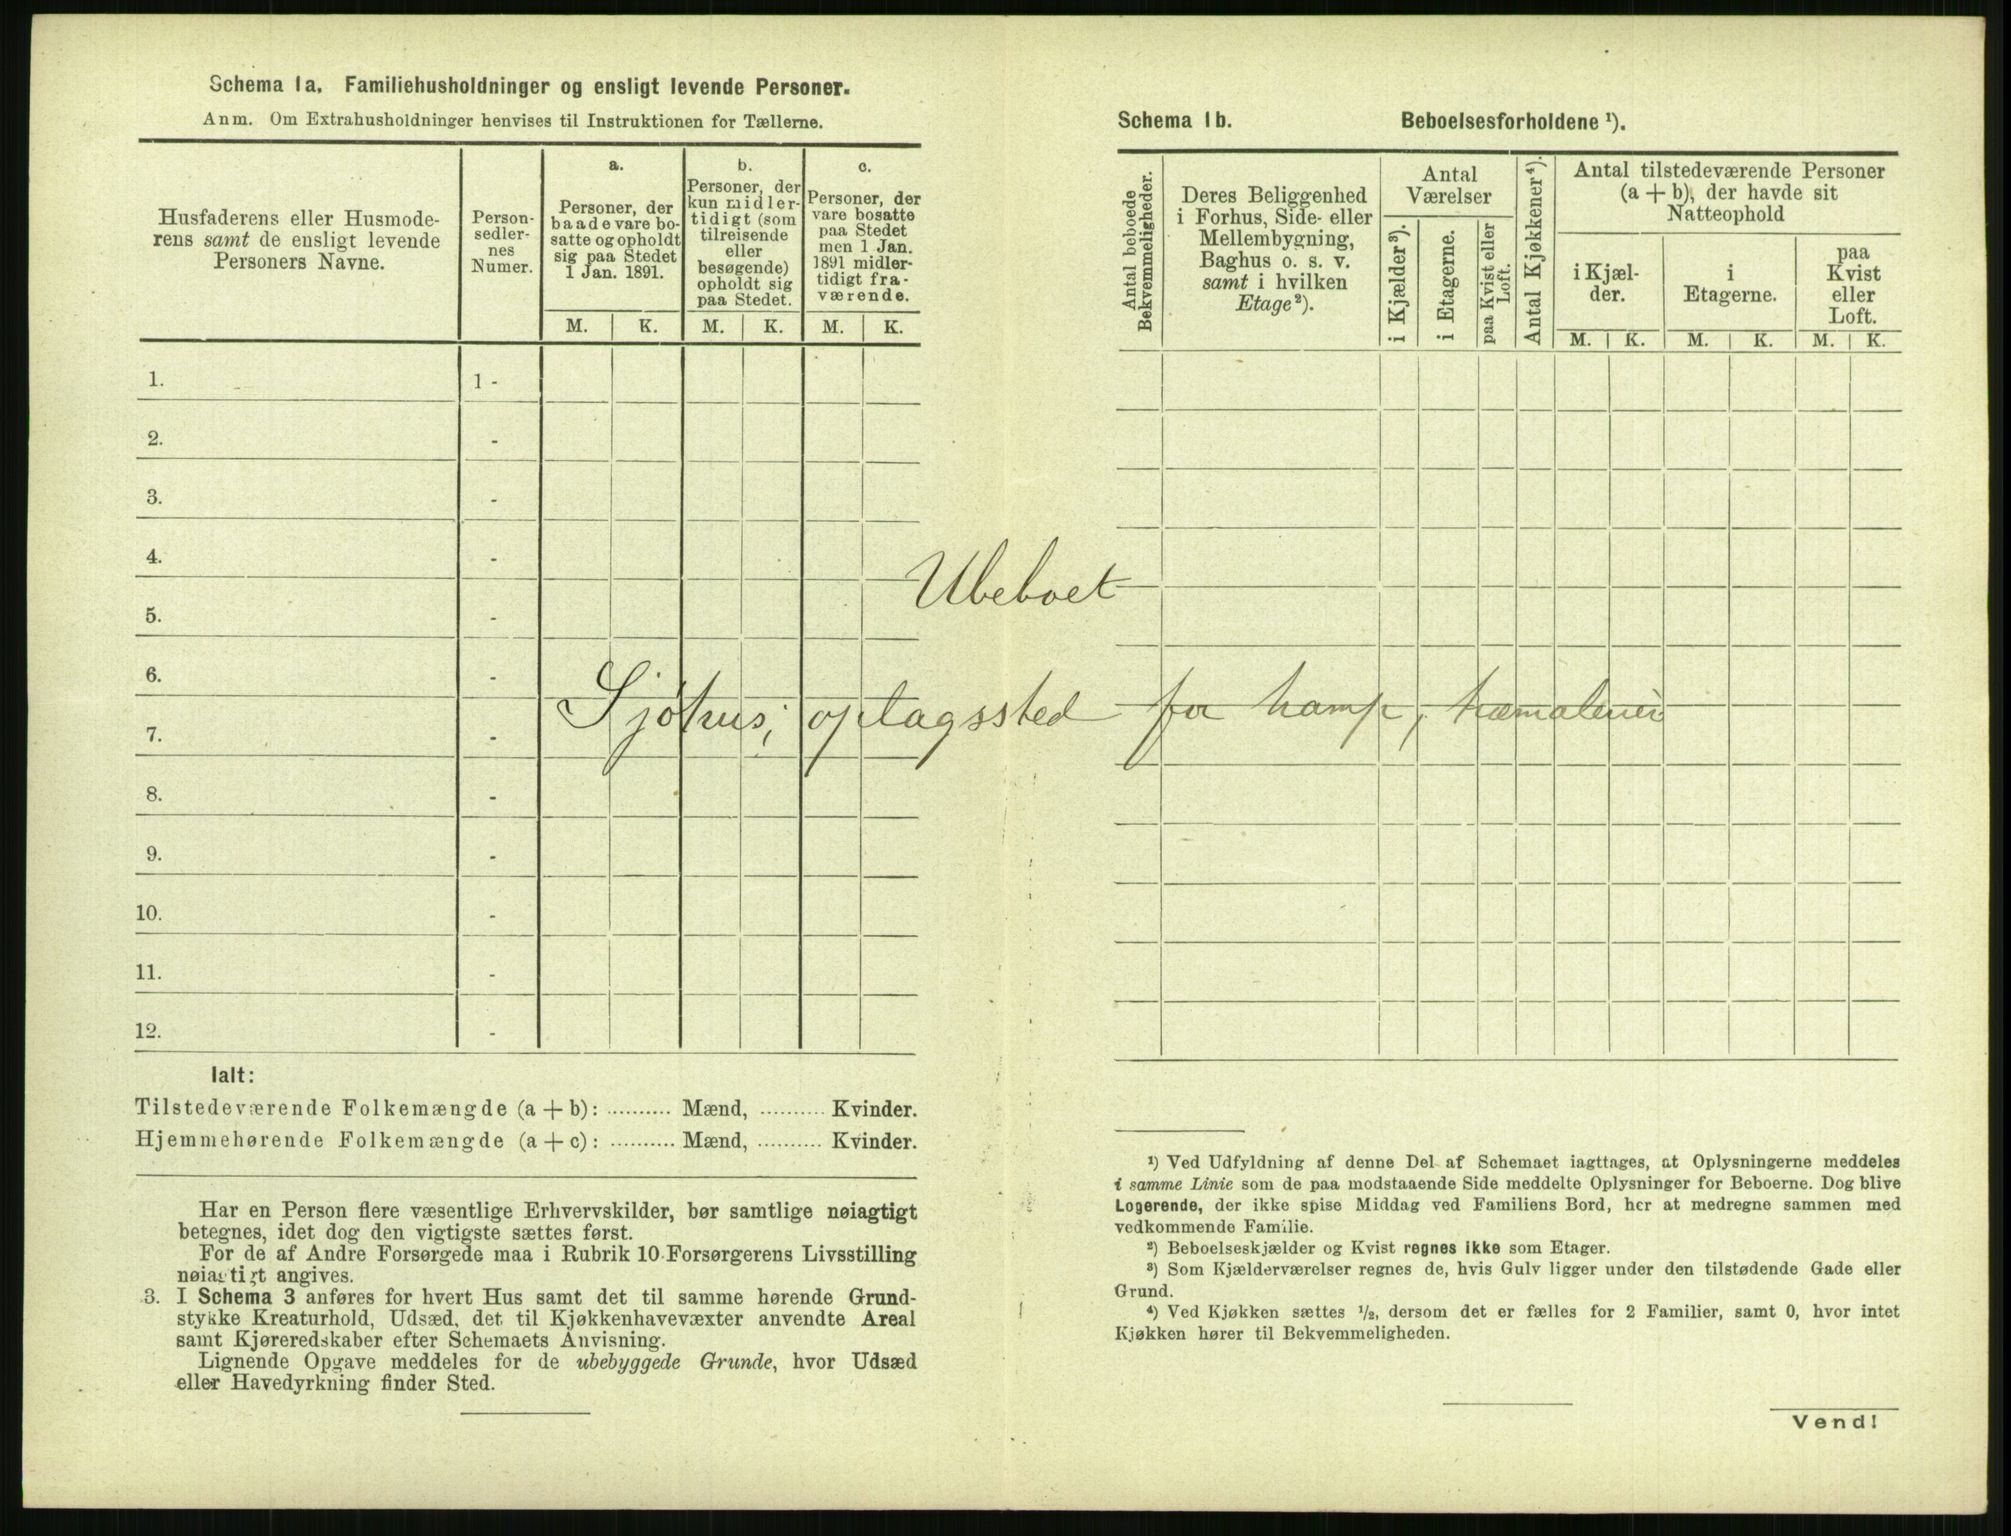 Schema 1a. Familiehusholdninger og ensligt levende Personer.
Anm. Om Extrahusholdninger henvises til Instruktionen for Tællerne.
Husfaderens eller Husmode-
rens samt de ensligt levende
Personers Navne.
Person-
sedler-
nes
Numer.
a.
Personer, der
baade vare bo-
satte og opholdt
sig paa Stedet
1 Jan. 1891.
b.
Personer, der
kun midler-
tidigt (som
tilreisende
eller
besøgende)
opholdt sig
paa Stedet.
c.
Personer, der
vare bosatte
paa Stedet
men 1 Jan.
1891 midler-
tidigt fra-
værende.
M. K. M. K. M. K.
1. 1 -
2. -
3. -
4. -
5. -
6. -
7. -
8. -
9. -
10. -
11. -
12. -
Ialt:
Tilstedeværende Folkemængde (a + b): .......... Mænd, .......... Kvinder.
Hjemmehørende Folkemængde (a + c): .......... Mænd, .......... Kvinder.
Har en Person flere væsentlige Erhvervskilder, bør samtlige nøiagtigt
betegnes, idet dog den vigtigste sættes først.
For de af Andre Forsørgede maa i Rubrik 10 Forsørgerens Livsstilling
nøiagtigt angives.
3. I Schema 3 anføres for hvert Hus samt det til samme hørende Grund-
stykke Kreaturhold, Udsæd, det til Kjøkkenhavevæxter anvendte Areal
samt Kjøreredskaber efter Schemaets Anvisning.
Lignende Opgave meddeles for de ubebyggede Grunde, hvor Udsæd
eller Havedyrkning finder Sted.
Ubeboet
Sjøhus; oplagssted for hamp,
Schema 1b. Beboelsesforholdene ¹).
Antal beboede
Bekvemmeligheder.
Deres Beliggenhed
i Forhus, Side- eller
Mellembygning,
Baghus o. s. v.
samt i hvilken
Etage ²).
Antal
Værelser
i Kjælder ³).
i Etagerne.
paa Kvist eller
Loft.
Antal Kjøkkener ⁴).
Antal tilstedeværende Personer
(a + b), der havde sit
Natteophold
i Kjæl-
der.
i
Etagerne.
paa
Kvist
eller
Loft.
M. K. M. K. M. K.
¹) Ved Udfyldning af denne Del af Schemaet iagttages, at Oplysningerne meddeles
i samme Linie som de paa modstaaende Side meddelte Oplysninger for Beboerne. Dog blive
Logerende, der ikke spise Middag ved Familiens Bord, her at medregne sammen med
vedkommende Familie.
²) Beboelseskjælder og Kvist regnes ikke som Etager.
³) Som Kjælderværelser regnes de, hvis Gulv ligger under den tilstødende Gade eller
Grund.
⁴) Ved Kjøkken sættes ½, dersom det er fælles for 2 Familier, samt 0, hvor intet
Kjøkken hører til Bekvemmeligheden.
Vend!